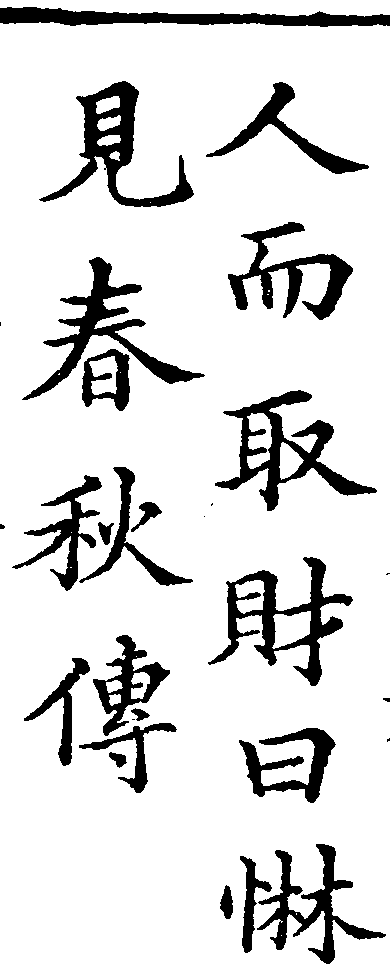 人而取財曰惏
見春秋傳